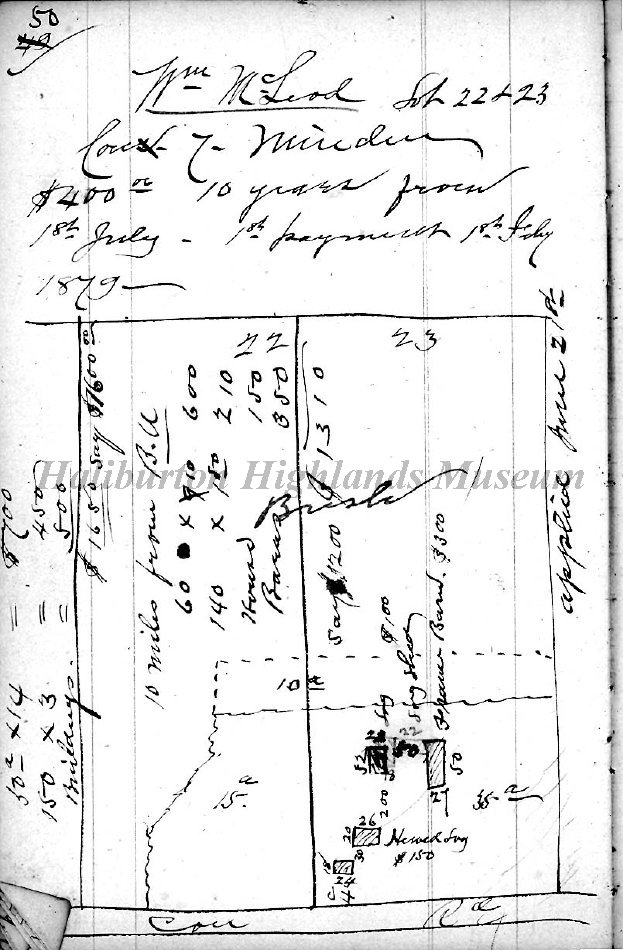 50
49
Wm McLeod Lot 22 & 23
Con 7 Minden
$400 00 10 years from
1st July - 1st payment 1st July
1879
22
23
applied June 21st
$1650 say $1600 00
50a x 14 = $700
150 x 3 = 450
Buildings. = 500
10 miles from B.U
60 x 10 600
140 x 1 50 210
House 150
Barns 350
$1310
Say $1200
Bush
Haliburton Highlands Museum
10 a
Log $100
Log Shed
Frame Barn. $300
22
50
52
50
27
15 a
35 a
200
26
20
30
Hewed Log
$150
18
24
Con Rd